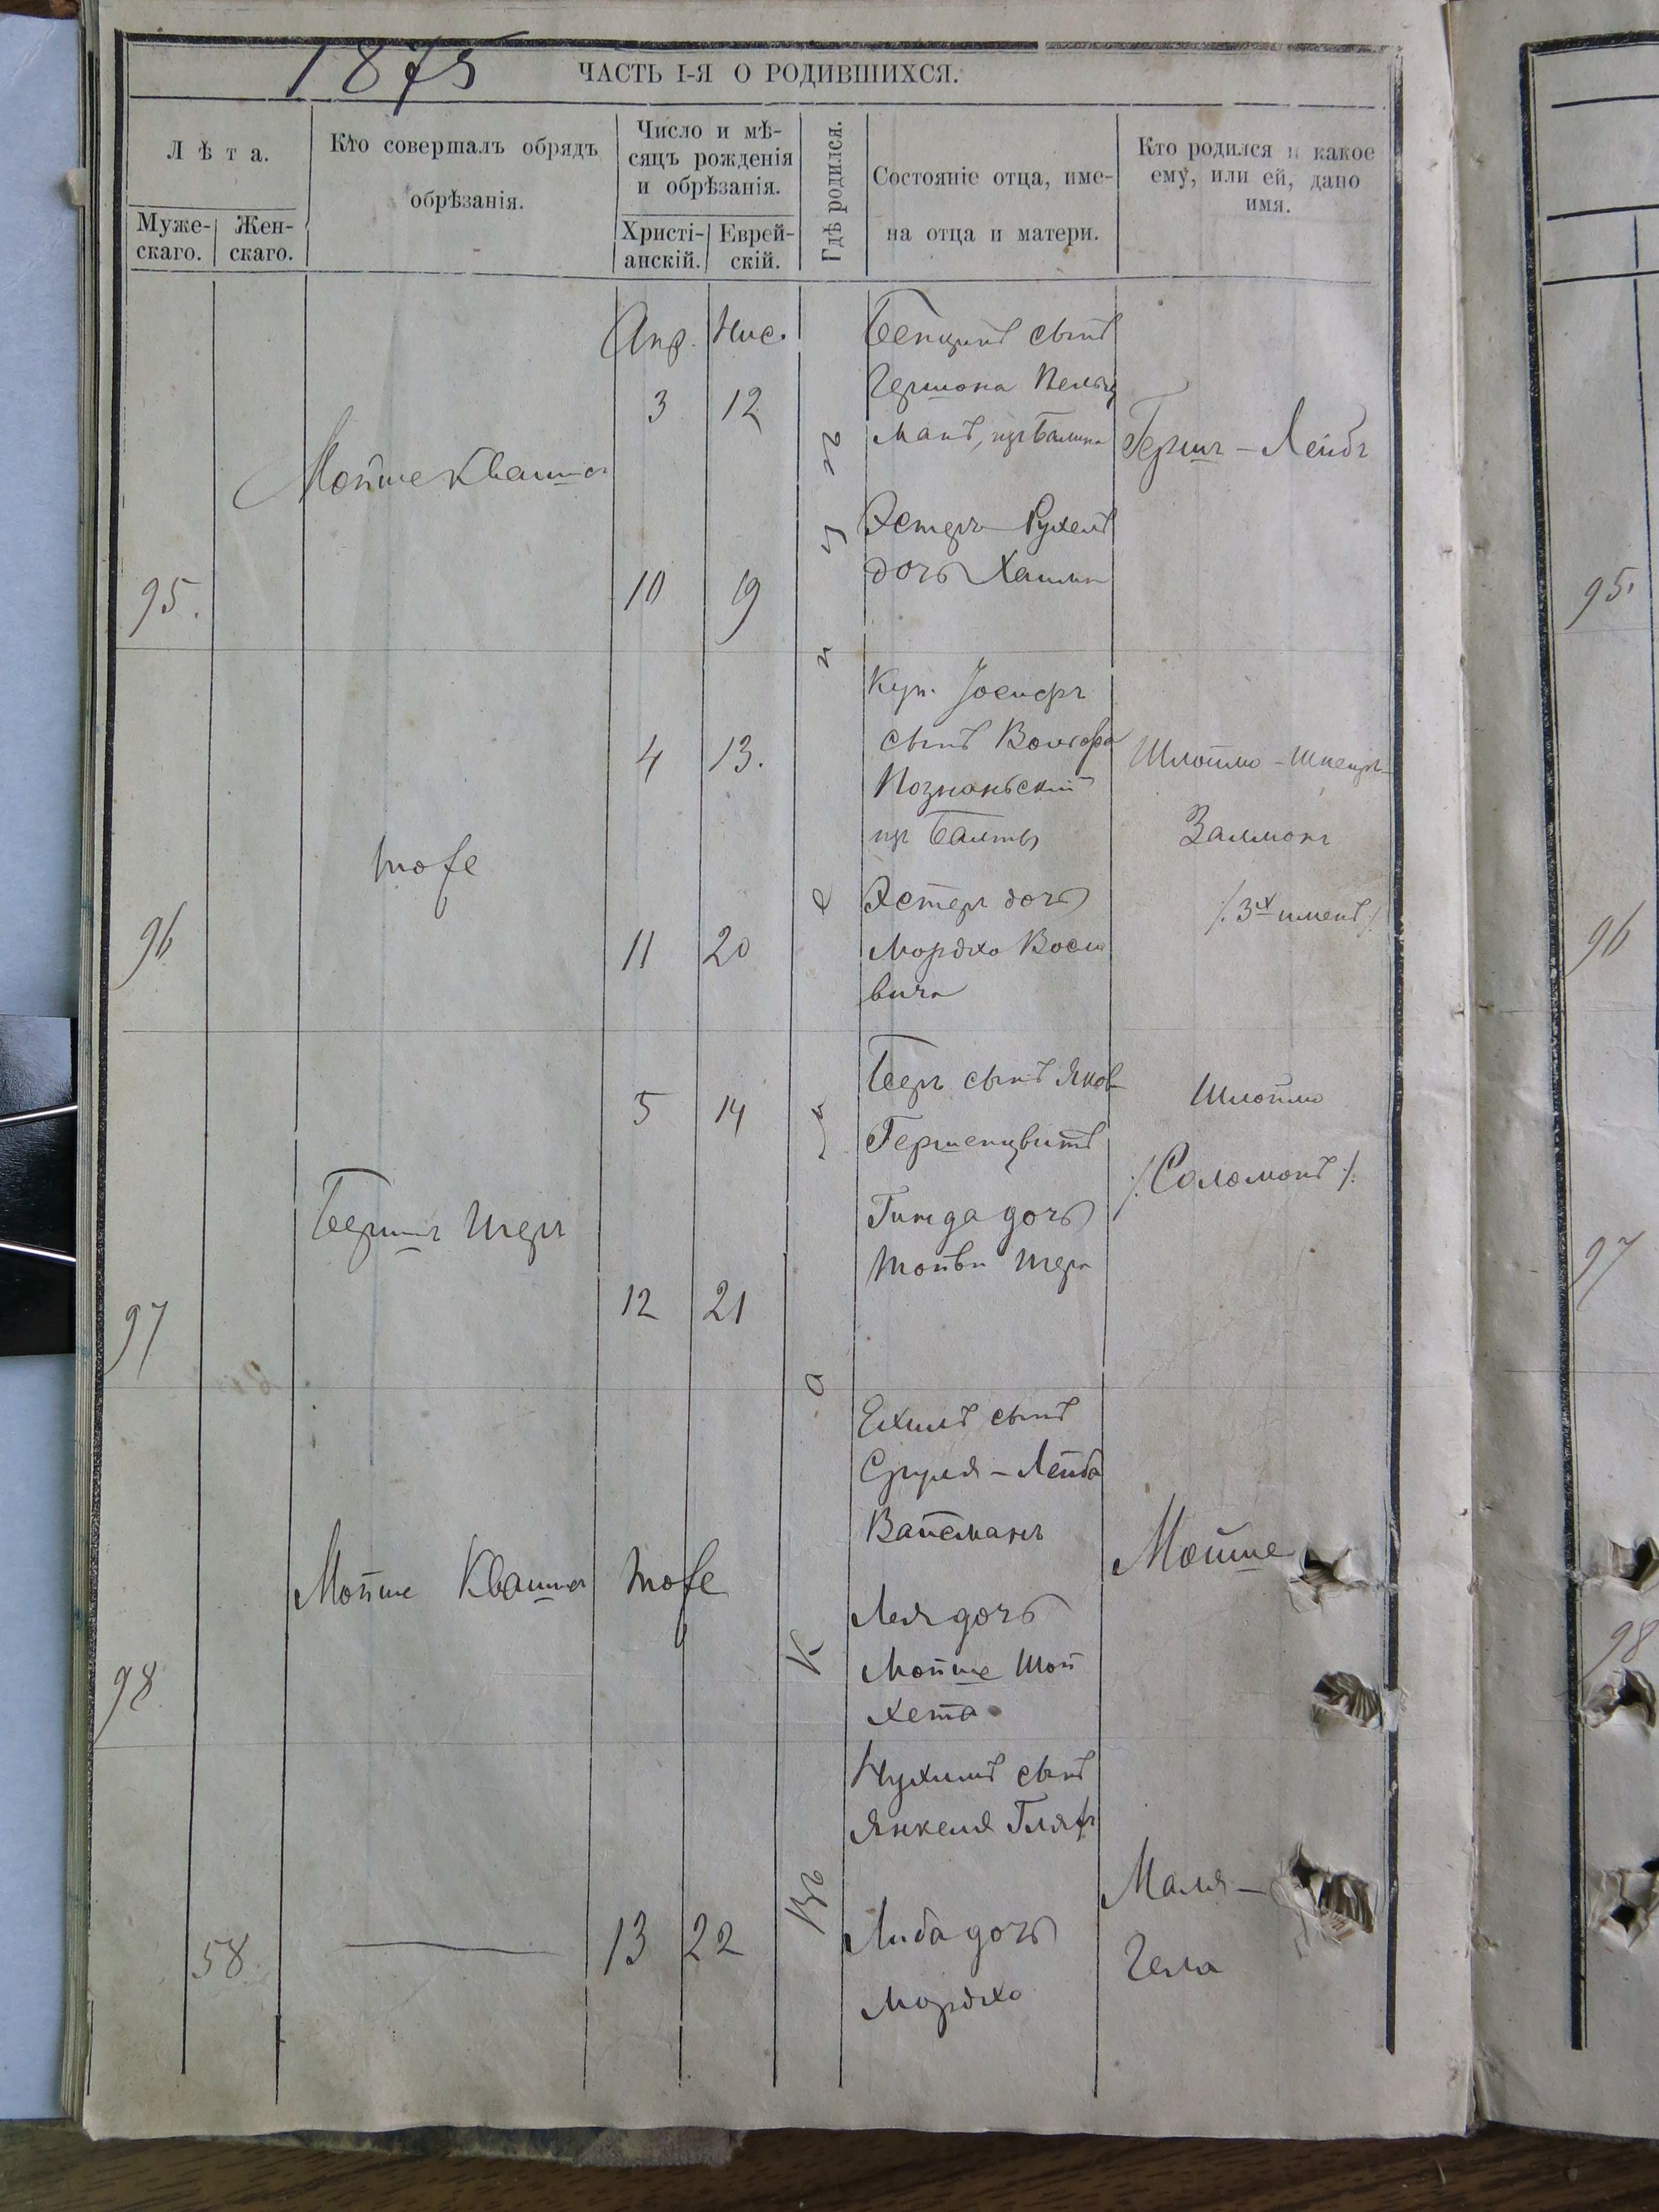 1875
ЧАСТЬ I-Я О РОДИВШИХСЯ.
Лѣта.
Муже-
скаго.
Жен-
скаго.
Кто совершалъ обрядъ
обрѣзанія.
Число и мѣ-
сяцъ рожденія
и обрѣзанія.
Христі-
анскій.
Еврей-
скій.
Гдѣ родился.
Состояніе отца, име-
на отца и матери.
Кто родился и какое
ему, или ей, дано
имя.
95.
Мойше Квашна
Апр. Нис.
3 12
10 19
Бенционъ сынъ
Гершона
манъ, изъ
Эстеръ Рухель
дочь Хаима
Гершъ - Лейбъ
96
тоже
4 13.
11 20
Куп. Іосифъ
сынъ Вольфа
Познаньскій
изъ Балты
Эстеръ дочь
Мордко
вича
Шлойма -
Залмонъ
/. 3х именъ /.
97
Бершъ Шеръ
5 14
12 21
Беръ сынъ Янов
Гершенцвитъ
Гитда дочь
Тойви Шера
Шлойма
/. Соломонъ /.
98
Мойше Квашна
тоже
Ехиль сынъ
Сруля - Лейба
Вайсманъ
Лея дочь
Мойше Шой
хета
Мойше
58
13 22
Нухимъ сынъ
Янкеля
Либа дочь
Мордко
Маля -
Гела
95.
96
97
98